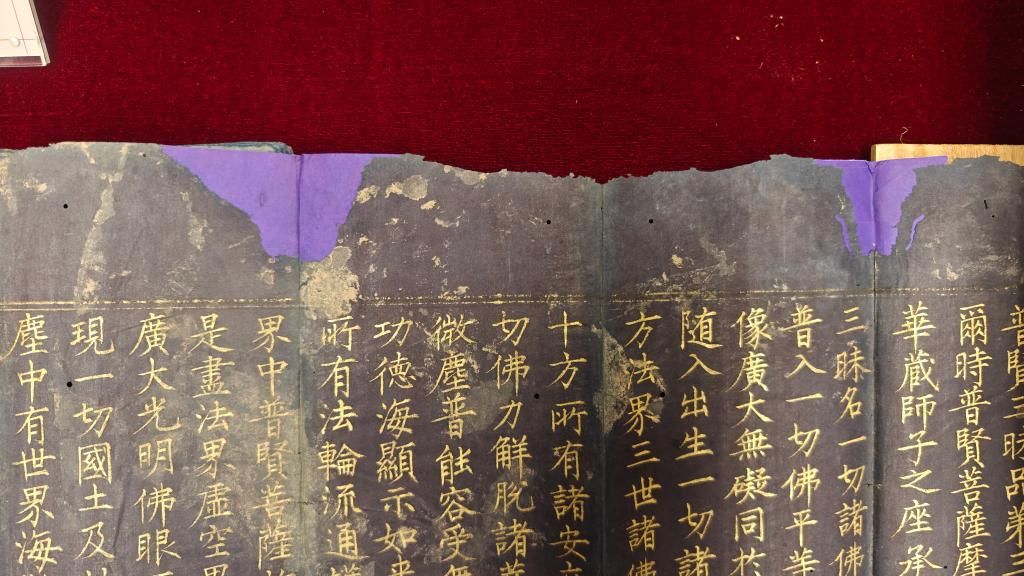 普賢三昧品第三
爾時普賢菩薩摩
華蔵師子之座承
三昧名一切諸佛
普入一切佛平等
像廣大無礙同於
随入出生一切諸
方法界三世諸佛
十方所有諸安立
切佛力觧脫諸菩
微塵普能容受無
功德海顯示如来
所有法輪流通
界中普賢菩薩
是盡法界虛空界
廣大光明佛眼
現一切國土及
塵中有世界海